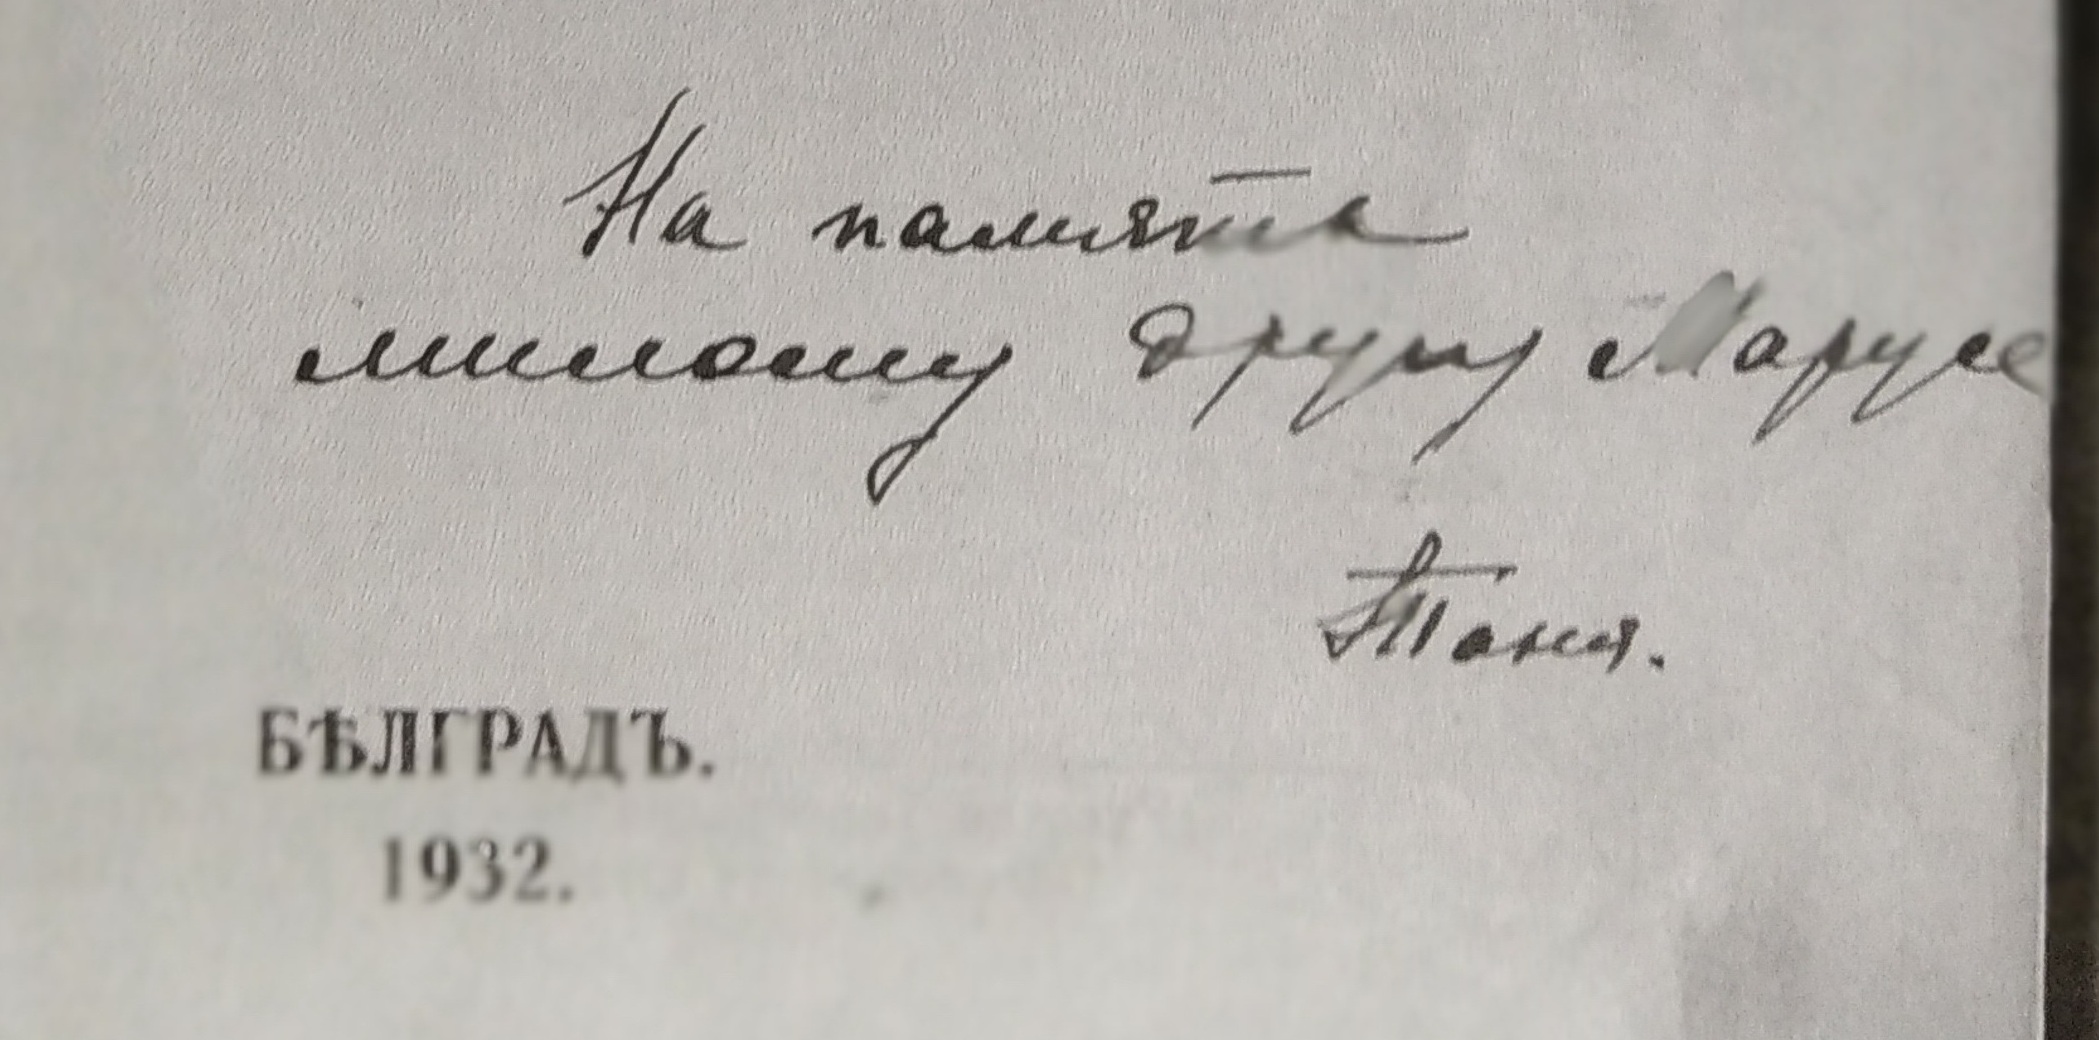 На память
милому другу Марусе
Таня.
БѢЛГРАДЪ.
1932.